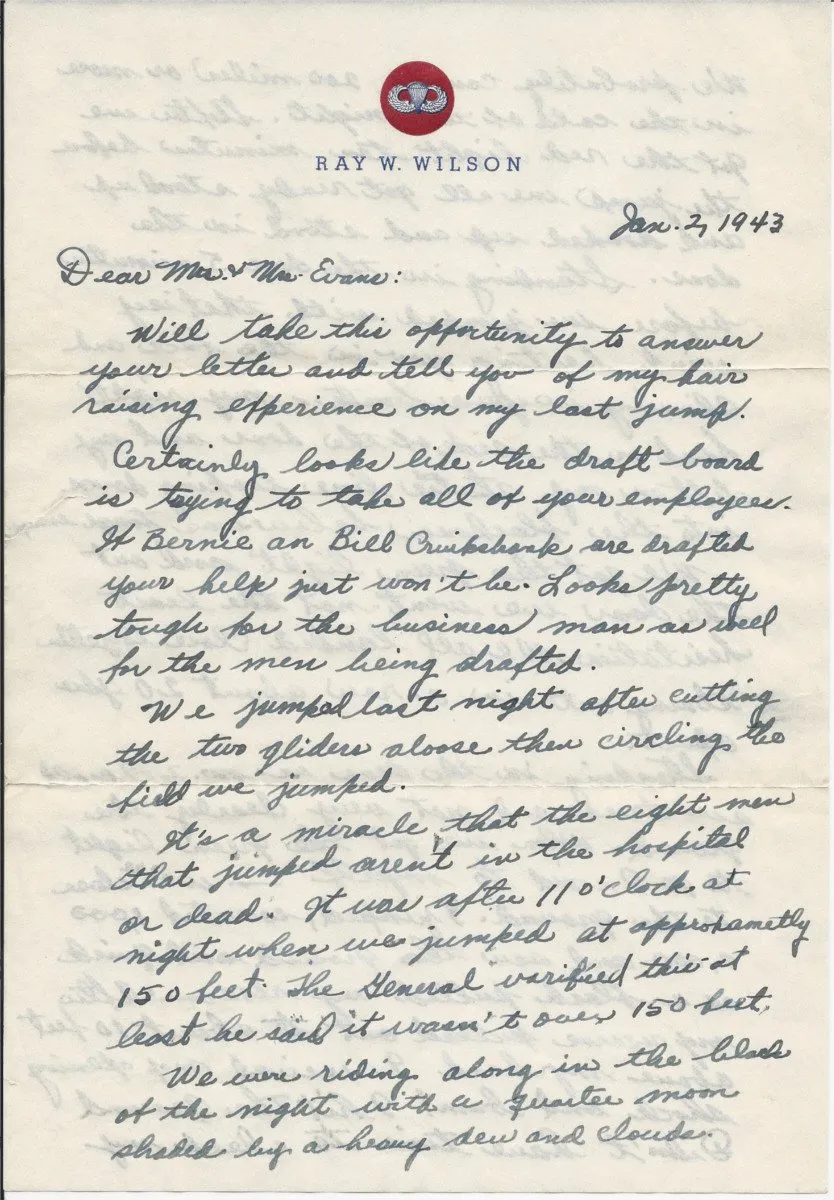 RAY W. WILSON
Jan. 2, 1943
Dear Mrs. & Mr. Evans:
Will take this opportunity to answer
your letter and tell you of my hair
raising experience on my last jump.
Certainly looks like the draft board
is trying to take all of your employees.
If Bernie an Bill Cruikshank are drafted
your help just won't be. Looks pretty
tough for the business man as well
for the men being drafted.
We jumped last night after cutting
the two gliders aloose then circling the
field we jumped.
It's a miracle that the eight men
that jumped aren't in the hospital
or dead. It was after 11 o'clock at
night when we jumped at approxametly
150 feet. The General varified this at
least he said it wasn't over 150 feet.
We were riding along in the black
of the night with a quarter moon
shaded by a heavy dew and clouds.